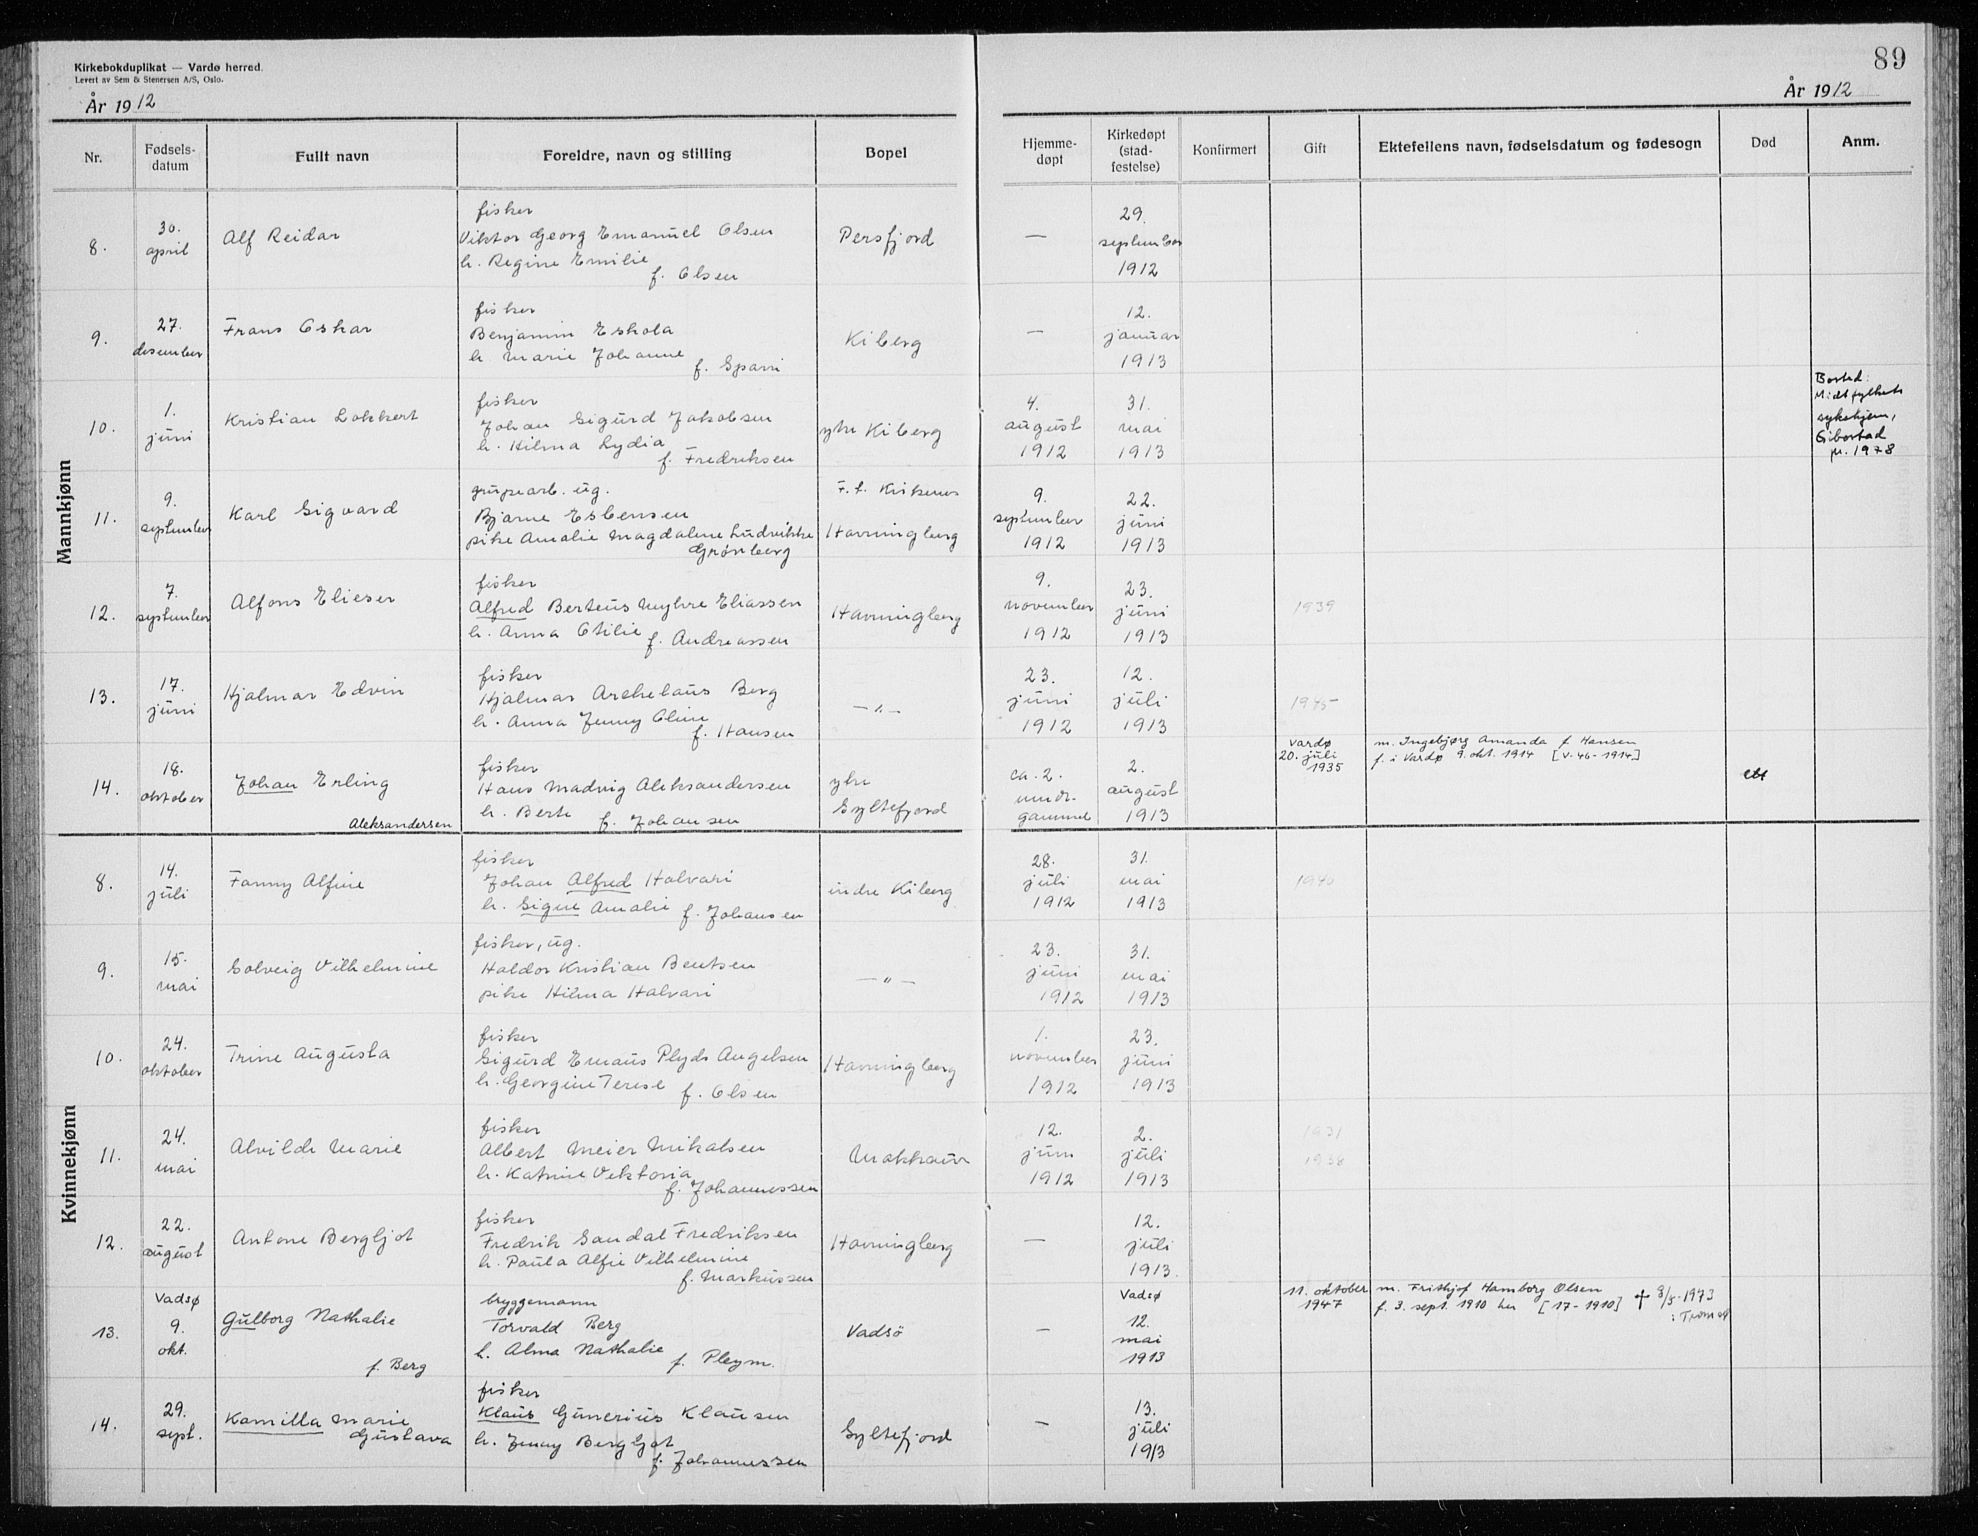 Kirkebokduplikat — Vardø herred.
Levert av Sem & Stenersen A/S, Oslo.
89
År 1912
År 1912
Nr.
Fødsels-
datum
Fullt navn
Foreldre, navn og stilling
Bopel
Hjemme-
døpt
Kirkedøpt
(stad-
festelse)
Konfirmert
Gift
Ektefellens navn, fødselsdatum og fødesogn
Død
Anm.
Mannkjønn
8.
30.
april
Alf Reidar
fisker
Viktor Georg Emanuel Olsen
h. Regine Emilie
f. Olsen
Persfjord
—
29.
september
1912
9.
27.
desember
Frans Oskar
fisker
Benjamin Eskola
h. Marie Johanne
f. Sparri
Kiberg
—
12.
januar
1913
10.
1.
juni
Kristian Lokkert
fisker
Johan Sigurd Jakobsen
h. Hilma Lydia
f. Fredriksen
ytre Kiberg
4.
august
1912
31.
mai
1913
Bosted:
Midtfylkets
sykehjem,
Gibostad
pr. 1978
11.
9.
september
Karl Sigvard
grupearb. ug.
Bjarne Esbensen
pike Amalie Magdalene Ludvikke
Grønberg
F. f. Kirkenes
Havningberg
9.
september
1912
22.
juni
1913
12.
7.
september
Alfons Elieser
fisker
Alfred Berteus Myhre Eliassen
h. Anna Otilie
f. Andreassen
Havningberg
9.
november
1912
23.
juni
1913
1939
13.
17.
juni
Hjalmar Edvin
fisker
Hjalmar Archelaus Berg
h. Anna Jenny Oline
f. Hansen
— „ —
23.
juni
1912
12.
juli
1913
1945
14.
18.
oktober
Johan Erling
Aleksandersen
fisker
Hans Madvig Aleksandersen
h. Berte f. Johansen
ytre
Syltefjord
ca. 2.
gammel
2.
august
1913
Vardø
20. juli
1935
m. Ingebjørg Amanda f. Hansen
f. i Vardø 9. okt. 1914 [V. 46-1914]
Kvinnekjønn
8.
14.
juli
Fanny Alfine
fisker
Johan Alfred Halvari
h. Signe Amalie f. Johansen
indre Kiberg
28.
juli
1912
31.
mai
1913
1940
9.
15.
mai
Solveig Vilhelmine
fisker, ug.
Haldor Kristian Bentsen
pike Hilma Halvari
— „ —
23.
juni
1912
31.
mai
1913
10.
24.
oktober
Trine Augusta
fisker
Sigurd Emaus Plyds Angelsen
h. Georgine Terese
f. Olsen
Havningberg
1.
november
1912
23.
juni
1913
11.
24.
mai
Alvilde Marie
fisker
Albert Meier Mikalsen
h. Katrine Viktoria
f. Johannessen
Makkaur
12.
juni
1912
2.
juli
1913
1931
1938
12.
22.
august
Antone Bergljot
fisker
Fredrik Sandal Fredriksen
h. Paula Alfie Vilhelmine
f. Markussen
Havningberg
—
12.
juli
1913.
13.
Vadsø
9.
okt.
Gulborg Nathalie
f. Berg
bryggemann
Torvald Berg
h. Alma Nathalie
f. Pleym.
Vadsö
—
Vadsø
12.
mai
1913
11. oktober
1947
m. Frithjof Hamborg Olsen
f. 3. sept. 1910 her [17-1910] † 8/5-1973
14.
29.
sept.
Kamilla Marie
Gustava
fisker
Klaus Gunerius Klausen
h. Jenny Bergljot
f. Johannessen
Syltefjord
—
13.
juli
1913